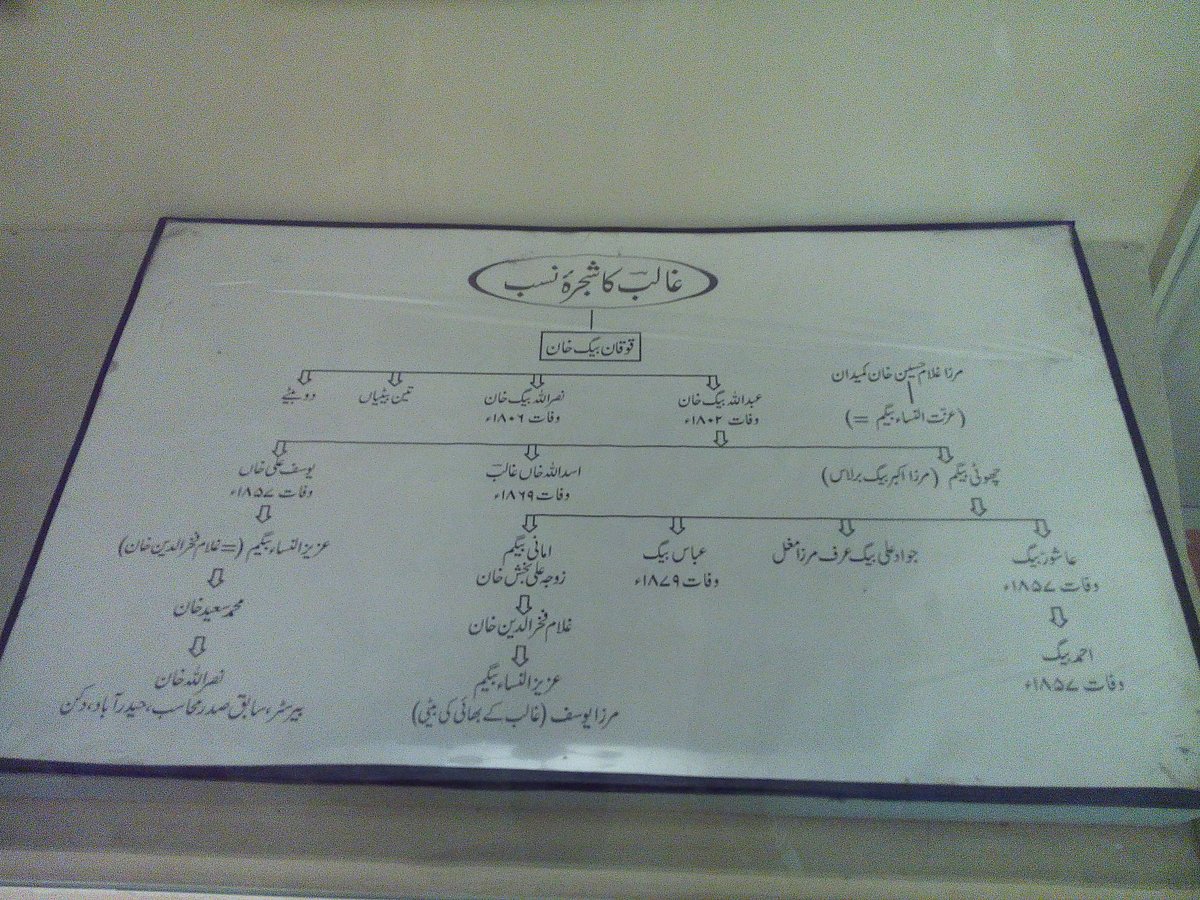 غالبؔ کا شجرۂ نسب
قوقان بیگ خان
مرزا غلام حسین خان کمیدان
(عزت النساء بیگم =)
عبداللہ بیگ خان
وفات ۱۸۰۲ء
نصراللہ بیگ خان
وفات ۱۸۰۶ء
تین بیٹیاں
دو بیٹے
چھوٹی بیگم (مرزا اکبر بیگ برلاس)
اسد اللہ خاں غالبؔ
وفات ۱۸۶۹ء
یوسف علی خاں
وفات ۱۸۵۷ء
عاشور بیگ
وفات ۱۸۵۷ء
جواد علی بیگ عرف مرزا مغل
عباس بیگ
وفات ۱۸۷۹ء
امانی بیگم
زوجہ علی بخش خان
عزیز النساء بیگم (= غلام فخر الدین خان)
احمد بیگ
وفات ۱۸۵۷ء
غلام فخر الدین خان
محمد سعید خان
عزیز النساء بیگم
مرزا یوسف (غالب کے بھائی کی بیٹی)
نصر اللہ خان
بیرسٹر، سابق صدر محاسب، حیدرآباد، دکن